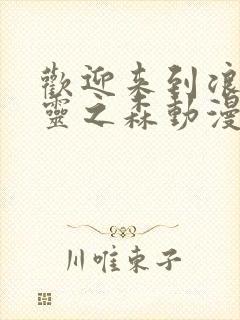 歡迎来到浪
靈之森動漫
川唯東子